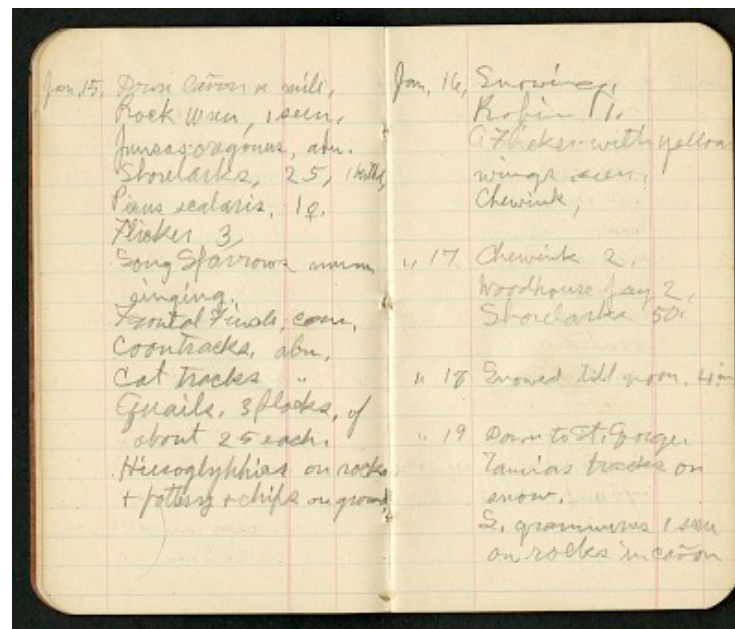 Jan, 15, Down Cañon a mile,
Rock Wren, 1 seen,
Juncos oregonus, abu.
Shorelarks, 25, 1 killed,
Picus scalaris, 1♀,
Flicker 3,
Song Sparrows
singing,
Frontal Finch, com,
Coontracks, abu,
Cat tracks "
Quails, 3 flocks, of
about 25 each.
Hieroglyphics on rocks
+ pottery + chips on ground
Jan, 16, Snowing,
Robin 11.
A Flicker with yellow
wings seen,
Chewink,
" 17 Chewink 2,
Woodhouse Jay 2,
Shorelarks 50.
" 18 Snowed till noon, 4 in
" 19 Down to St. George
Tamias tracks on
snow.
S. grammurus 1 seen
on rocks in cañon